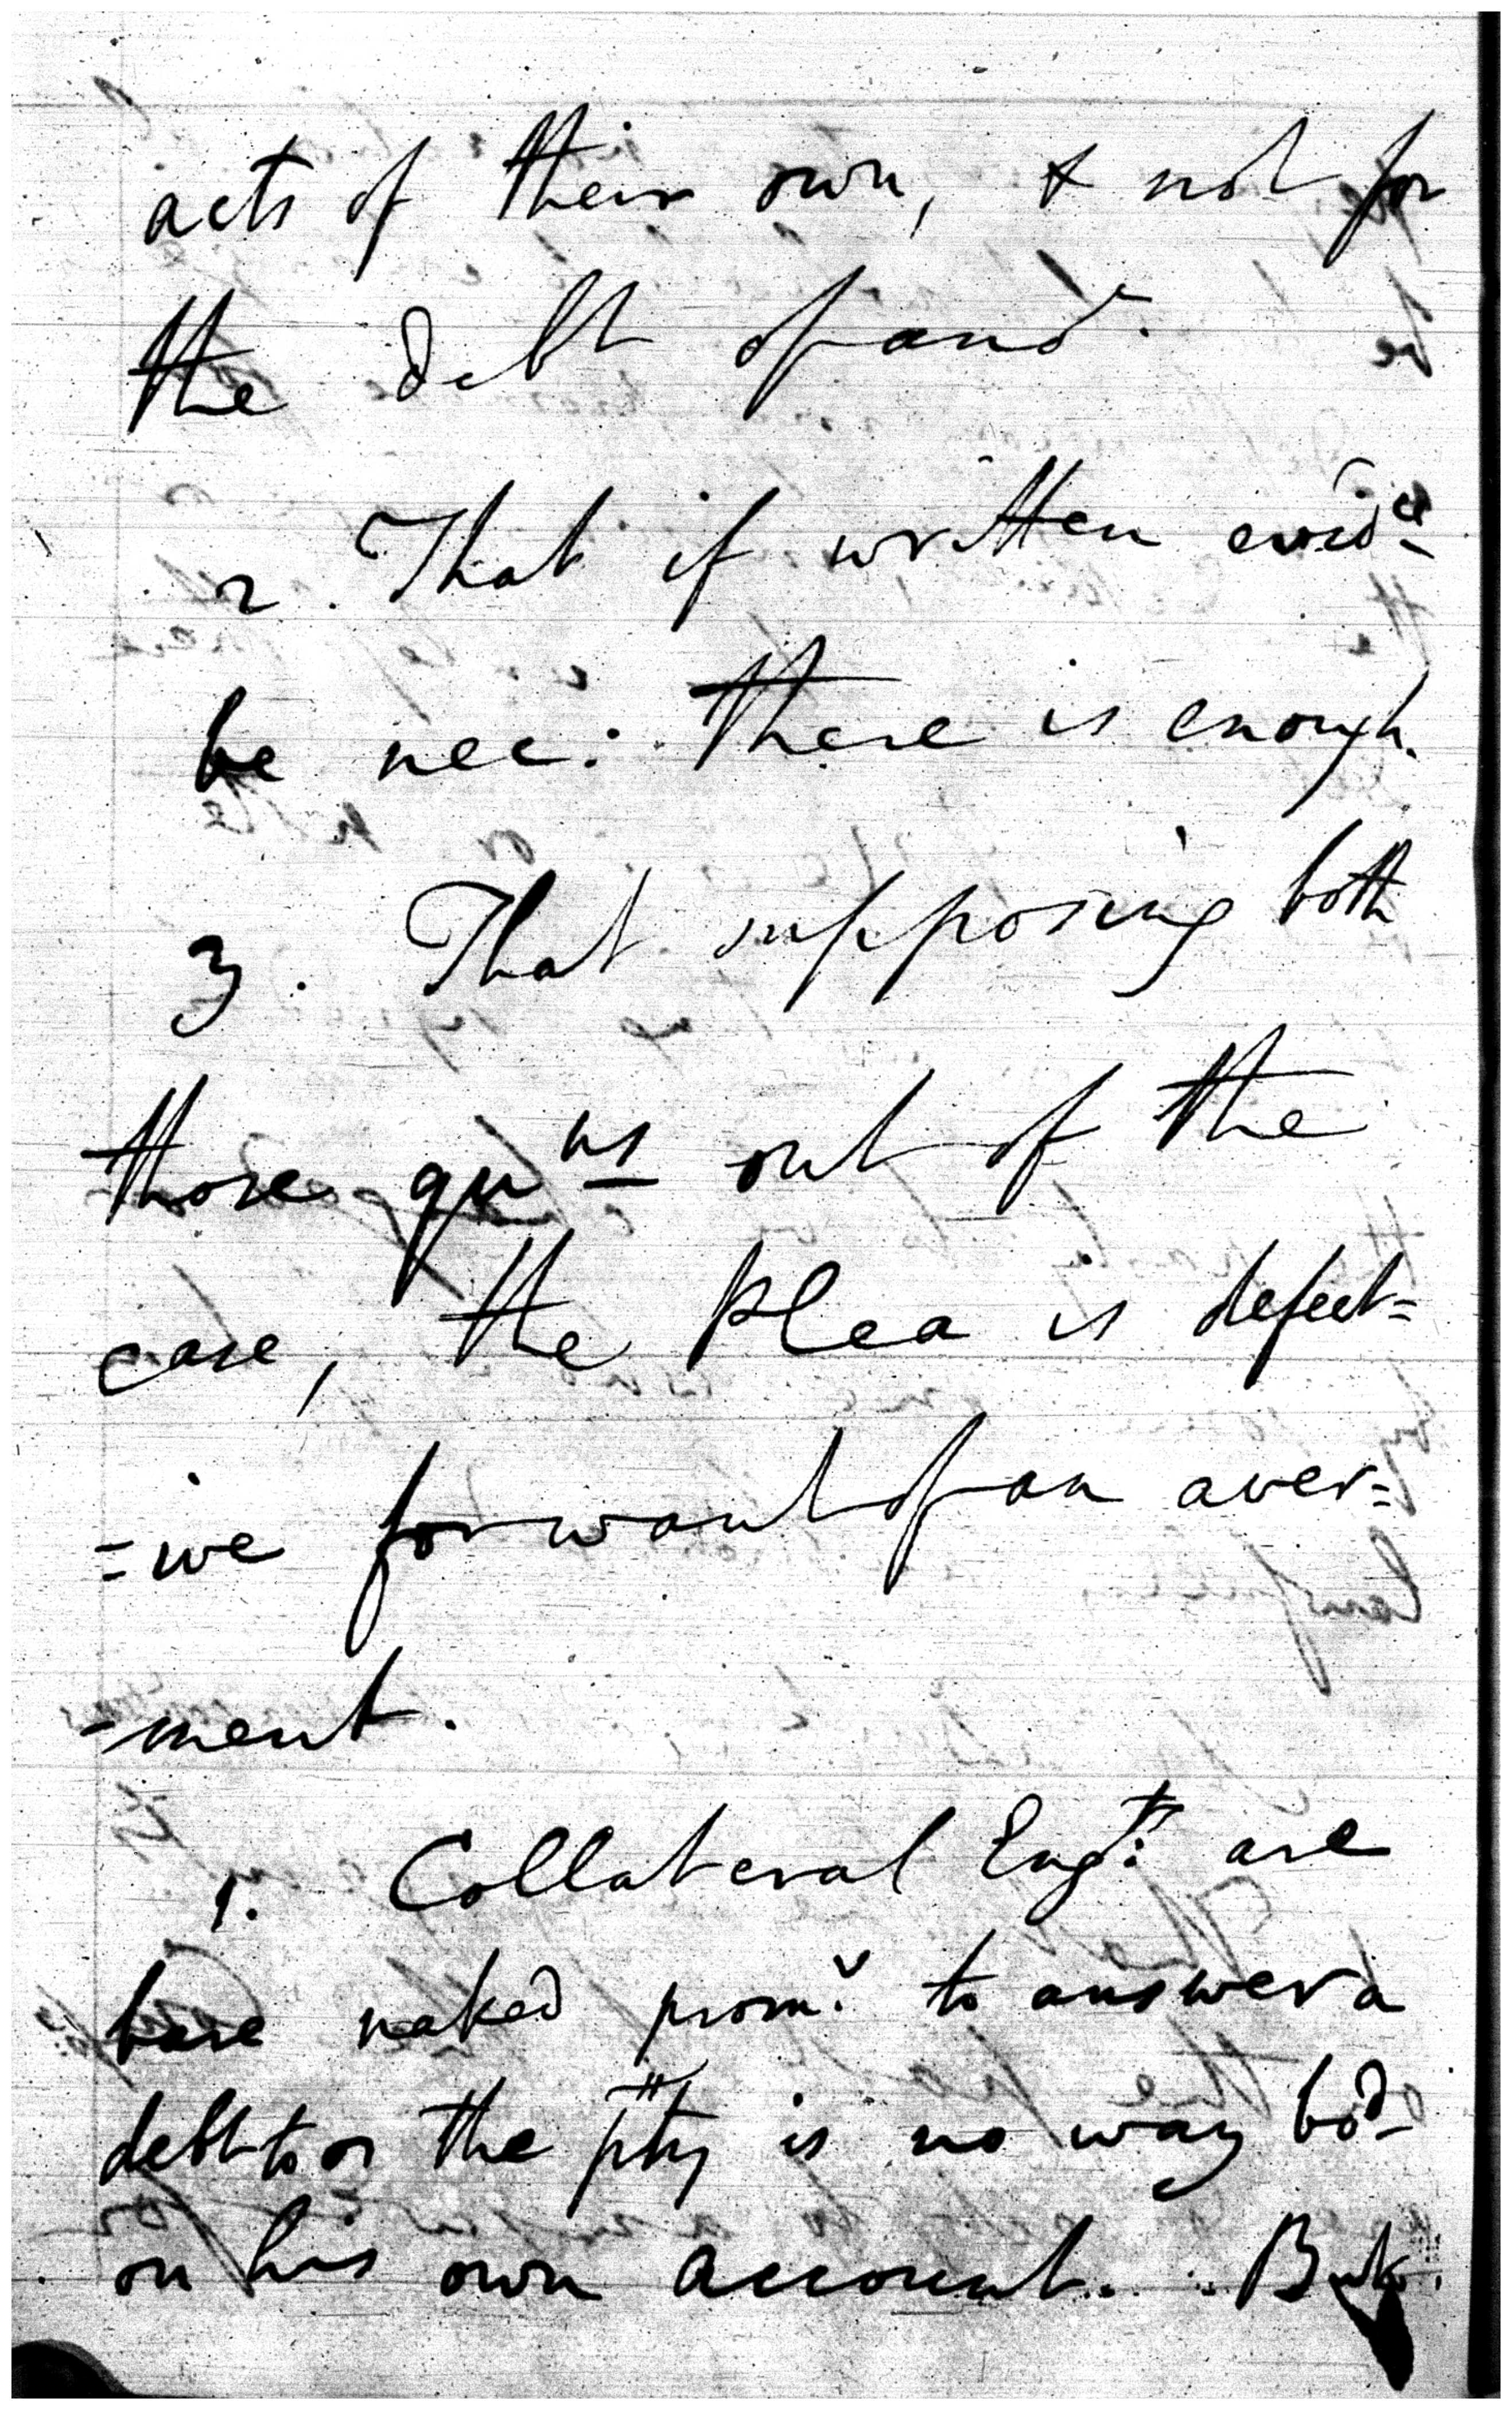 acts of their own, & not for
the debt of anoʳ.
2. That if written evidᶜᵉ
be nec: there is enough.
3. That supposing both
those quⁿˢ out of the
case, the Plea is defect=
=ive for want of an aver=
-ment.
1. Collateral Engᵗˢ: are
bare naked prom.ˢ to answer a
debt to wʰ the pty is no way boᵈ
on his own account. But